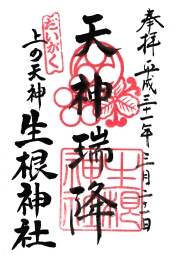 奉拝 平成三十一年 三月二十一日
天神瑞降
だいがく
上の天神
生根神社